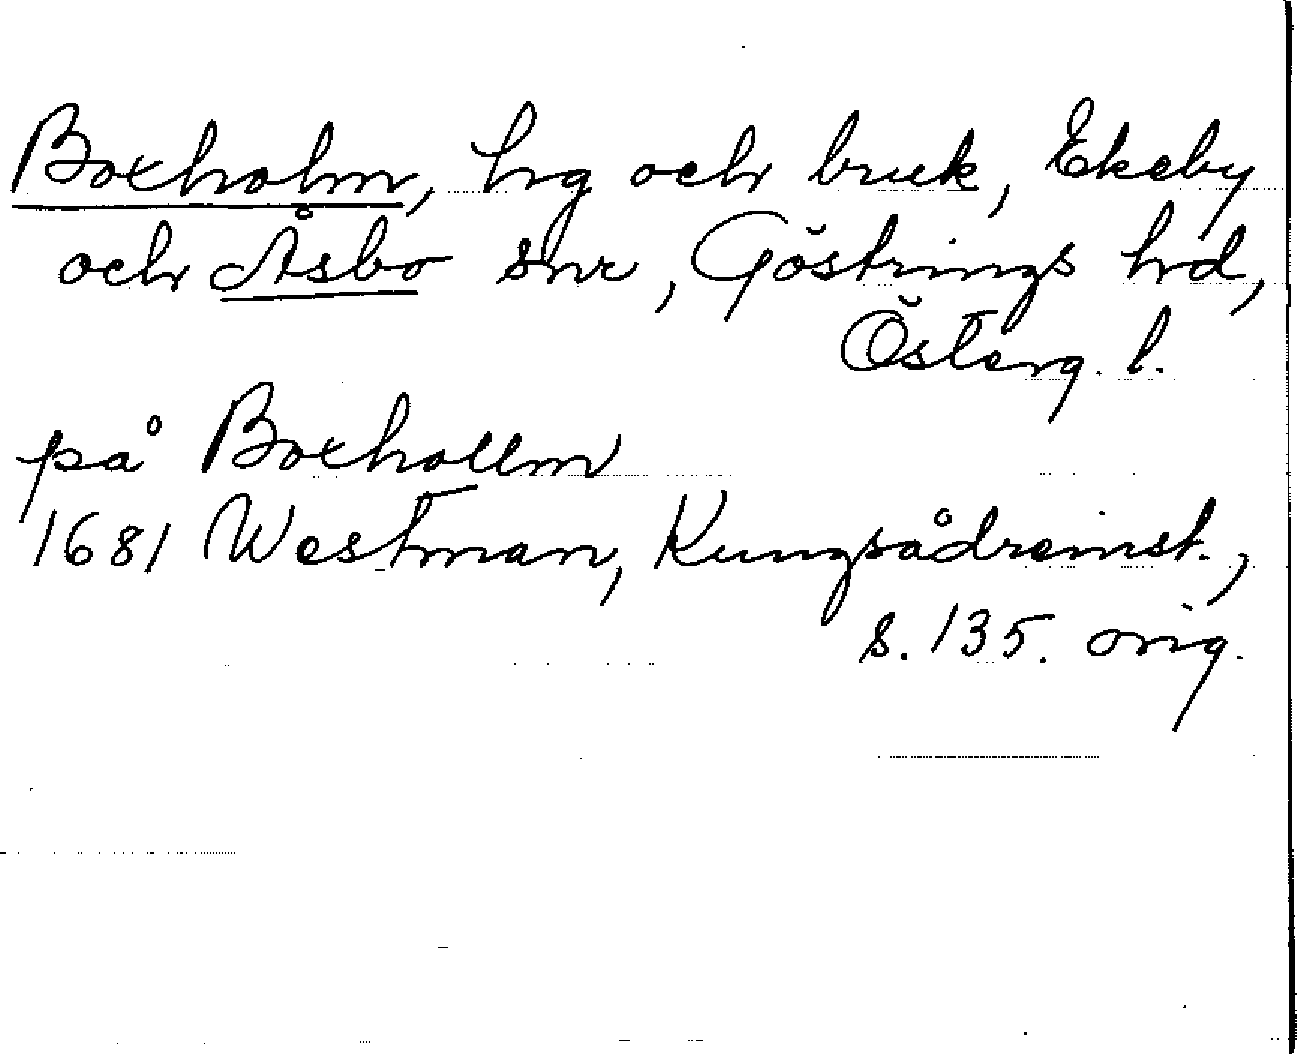 Boxholm, hrg och bruk, Ekeby
och Åsbo snr, Göstrings hrd,
Österg. l.
på Boxhollm
1681 Westman, Kungsådreinst.,
s. 135. orig.